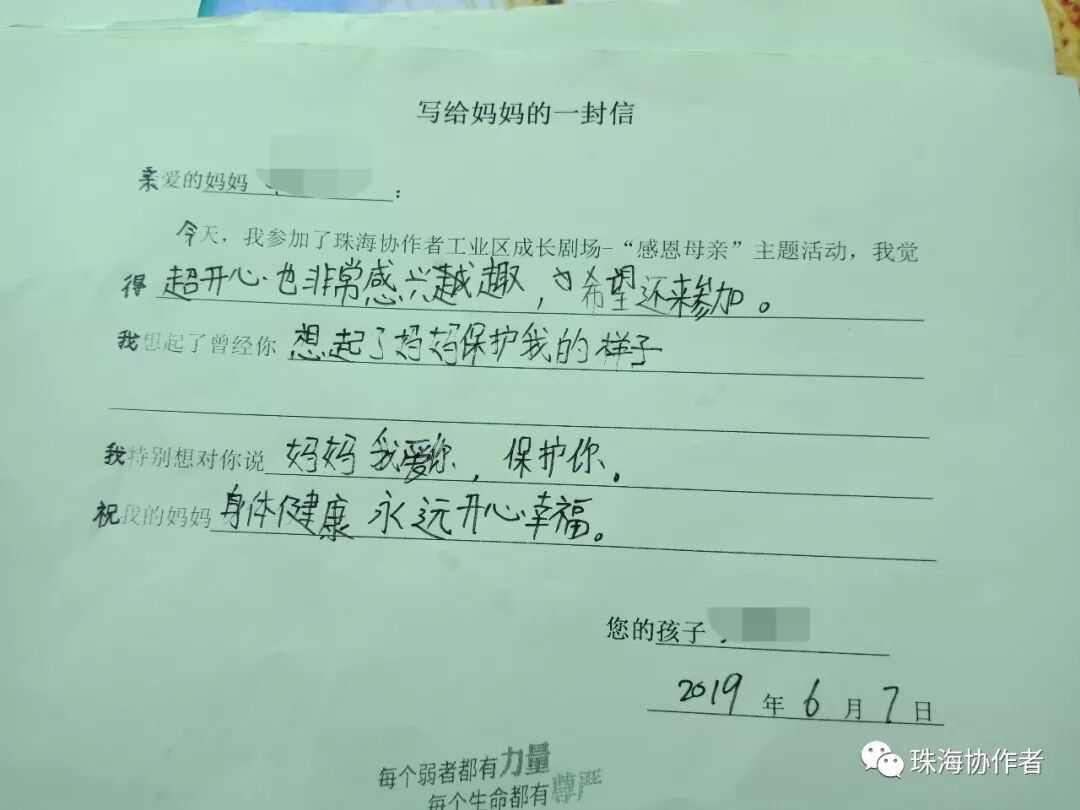 写给妈妈的一封信
亲爱的妈妈 :
今天，我参加了珠海协作者工业区成长剧场-“感恩母亲”主题活动，我觉
得 超开心也非常感兴越趣，希望还来参加。
我想起了曾经你 想起了妈妈保护我的样子
我特别想对你说 妈妈我爱你，保护你。
祝我的妈妈 身体健康 永远开心幸福。
您的孩子
2019 年 6 月 7 日
每个弱者都有力量
每个生命都有尊严
珠海协作者